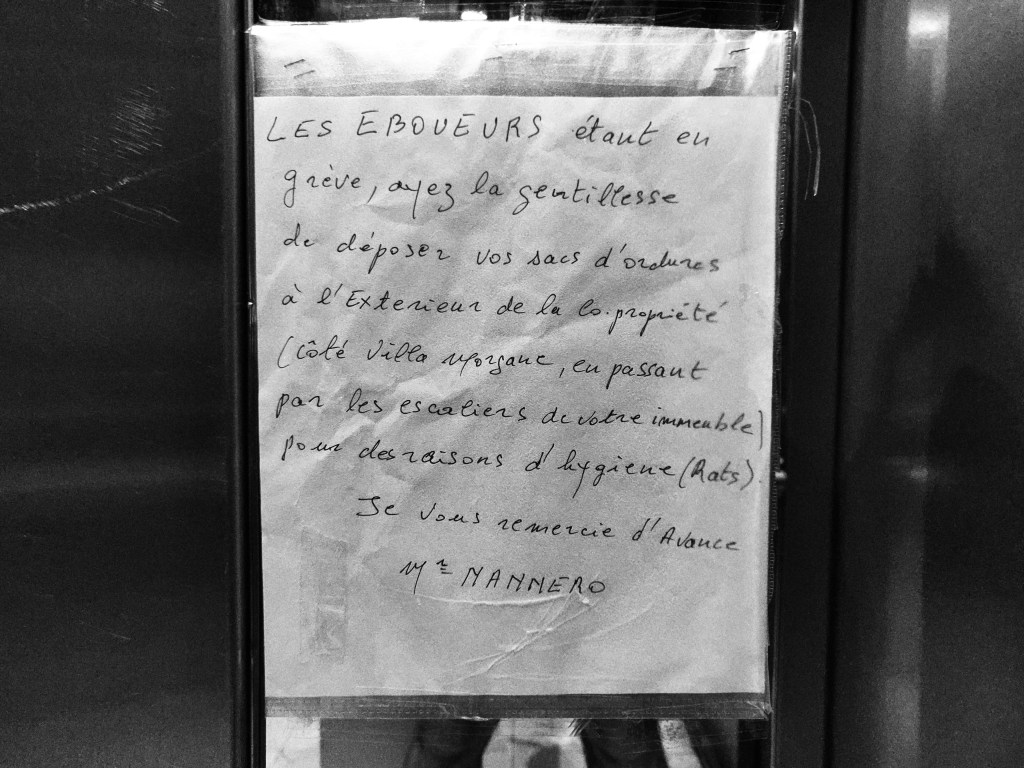 LES EBOUEURS étant en
grève, ayez la gentillesse
de déposer vos sacs d'ordures
à l'Exterieur de la Co.propriété
(Côté Villa Morgane, en passant
par les escaliers de votre immeuble)
pour des raisons d'hygiene (Rats).
Je vous remercie d'Avance
Mr NANNERO